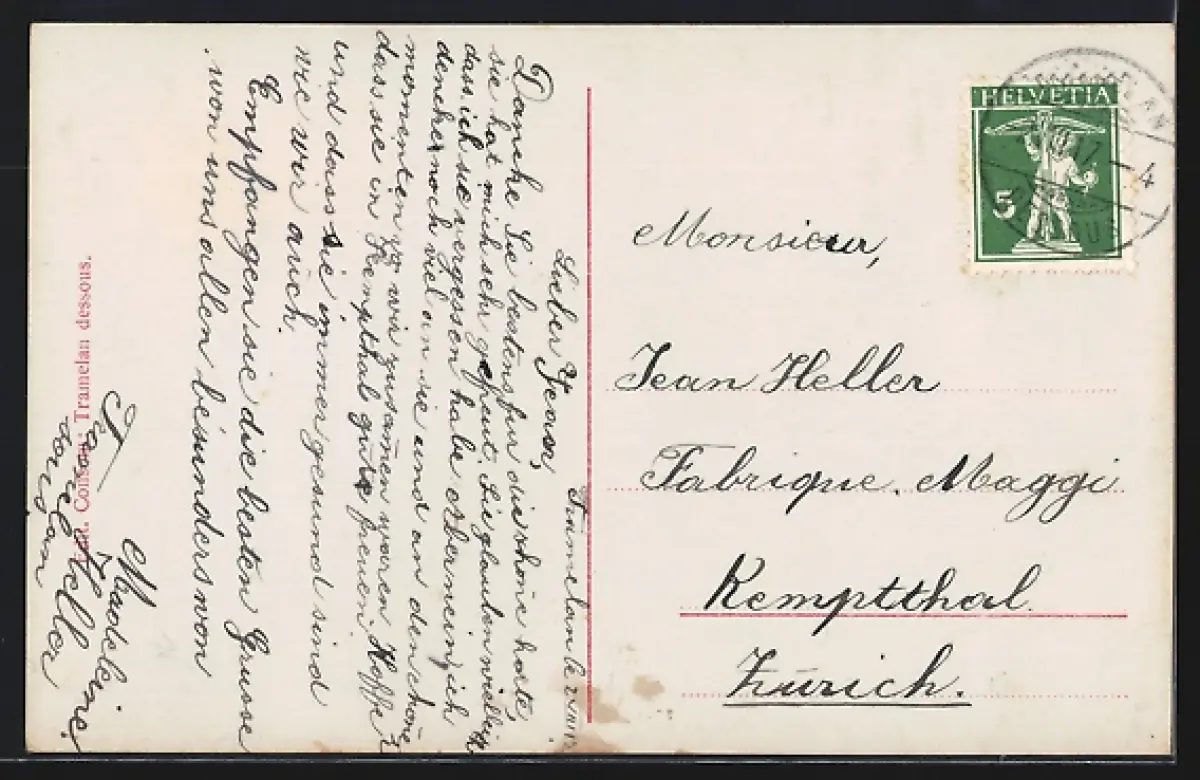 Tramelan le
Lieber Jean,
Danche Sie bestens für die schöne karte,
sie hat mich sehr gefreut. Sie glauben vielleicht
dass ich sie vergessen habe aber nein, ich
denche noch viel an sie und an den schöne
momenten wo wir zusamen waren. Hoffe
dass sie in Kemptthal gute freuen
und dass sie immer gesund sind
wie wir auch.
Empfangen sie die besten Grusse
von uns allen besunders von
Madeleine.
Heller
Tramelan dessous.
HELVETIA
5
17 – 4
Monsieur,
Jean Heller
Fabrique. Maggi
Kemptthal.
Zürich.